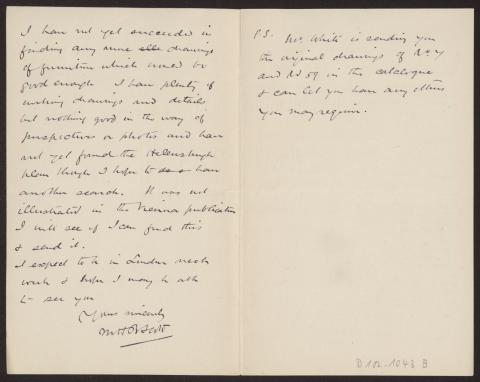 I have not yet succeeded in
finding any more elle drawings
of furniture which would be
good enough I have plenty of
working drawings and details
but nothing good in the way of
perspectives or photos and have
not yet found the Helensburgh
plan though I hope to have
another search. It was not
illustrated in the Vienna publication
I will see if I can find this
& send it.
I expect to be in London next
week & hope I may be able
to see you
Yours sincerely
M H B Scott
P.S. Mr. White is sending you
the original drawings of No. 4
and No 59 in the catalogue
& can let you have any others
you may require.
D 102-1043 B